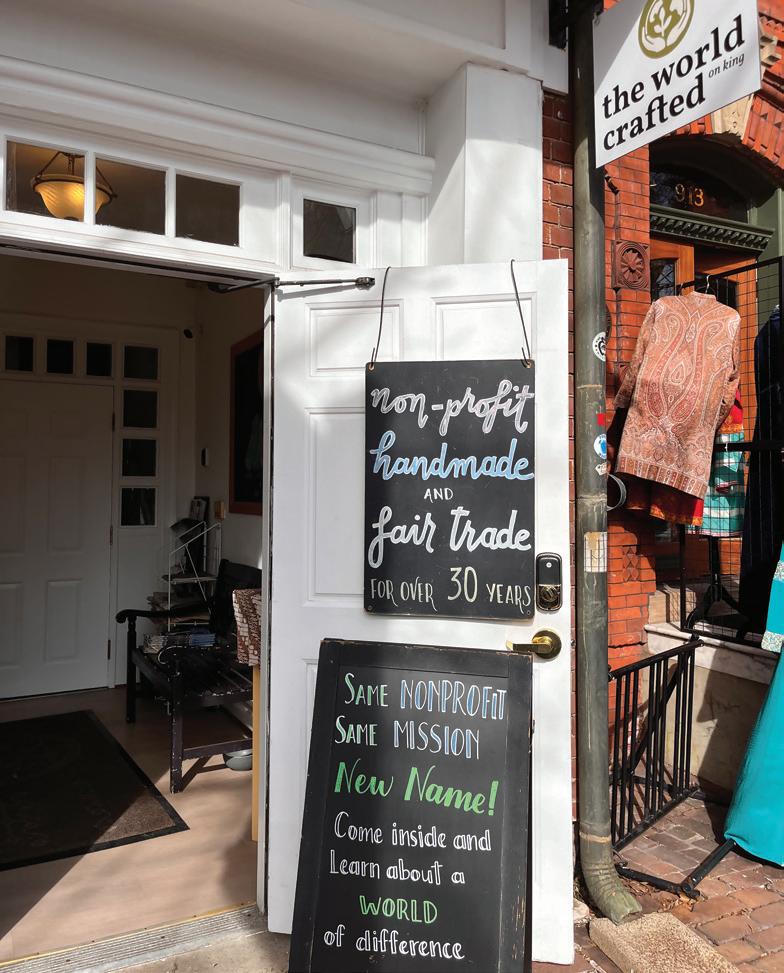 the world
on king
crafted
913
non-profit
handmade
AND
fair trade
FOR OVER 30 YEARS
SAME NONPROFIT
SAME MISSION
New Name!
Come inside and
Learn about a
WORLD
of difference